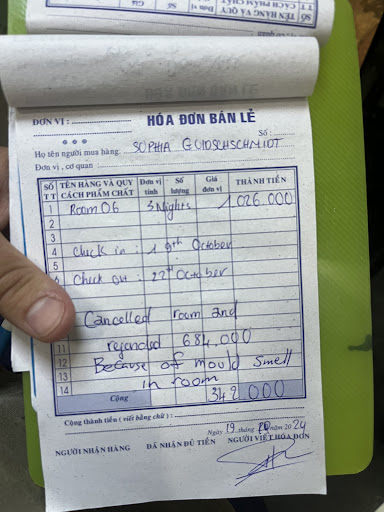 ĐƠN VỊ :
HÓA ĐƠN BÁN LẺ
Số :
Họ tên người mua hàng: SOPHIA GUIDSCHSCHMIDT
Đơn vị , cơ quan :
SỐ TT TÊN HÀNG VÀ QUY CÁCH PHẨM CHẤT Đơn vị tính Số lượng Giá đơn vị THÀNH TIỀN
1 Room 06 3 Nights 1 026.000
2
3
4 Check in : 19th October
5
Check out : 22nd October
Cancelled room and
11 refunded 684,000
12 Because of mould smell
13 in room
14
Cộng 342 000
Cộng thành tiền ( viết bằng chữ ) :
Ngày 19 tháng 10 năm 2024
NGƯỜI NHẬN HÀNG ĐÃ NHẬN ĐỦ TIỀN NGƯỜI VIẾT HÓA ĐƠN